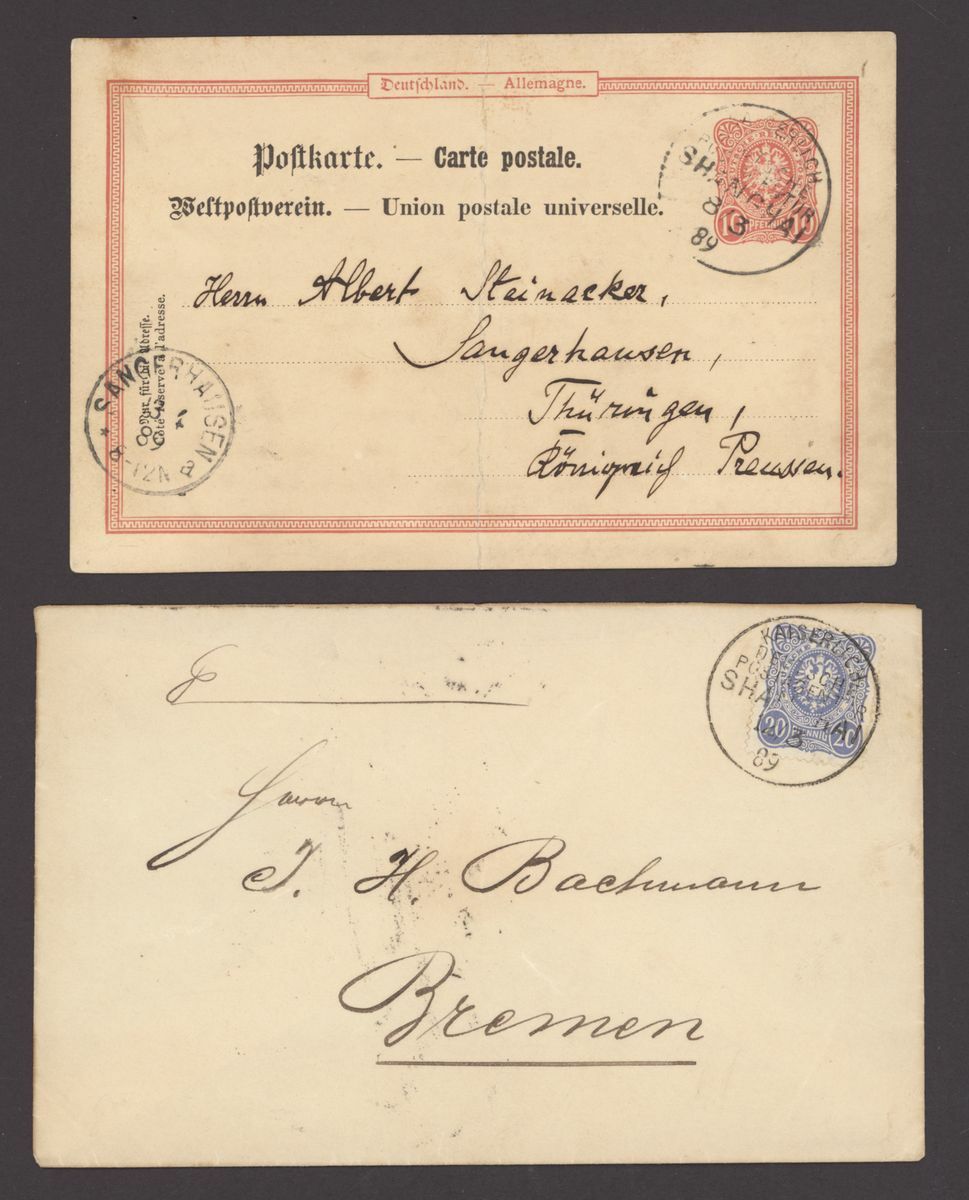 Deutschland. — Allemagne.
Postkarte. — Carte postale.
Weltpostverein. — Union postale universelle.
10 PFENNIG 10
SHANGHAI
8 3
89
Herrn Albert Steinacker,
Sangerhausen,
Thüringen,
Königreich Preussen.
Nur für die Adresse.
Côté réservé à l'adresse.
SANGERHAUSEN
89
KAISERL.
SHANGHAI
3
89
20 PFENNIG 20
Herrn
J. H. Bachmann
Bremen